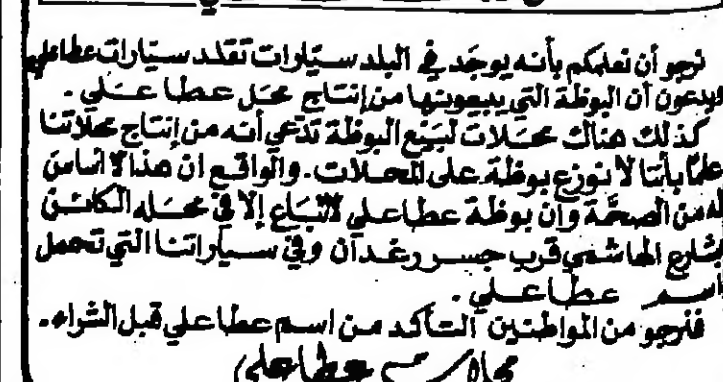 نرجو أن نعلمكم بأنه يوجد في البلد سيارات تقلد سيارات عطا علي
ويدعون أن البوظة التي يبيعونها من إنتاج محل عطا عـلي .
كذلك هناك محلات لبيع البوظة تدعي أنه من إنتاج محلاتنا
علمًا بأننا لا نوزع بوظة على المحلات . والواقع ان هذا لا اساس
له من الصحة وان بوظة عطا علي لا تباع إلا في محله الكائن
بشارع الهاشمي قرب جسر رغدان وفي سياراتنا التي تحمل
اسم عطا عـلي .
فنرجو من المواطنين التأكد من اسم عطا علي قبل الشراء .
محلات عطا علي